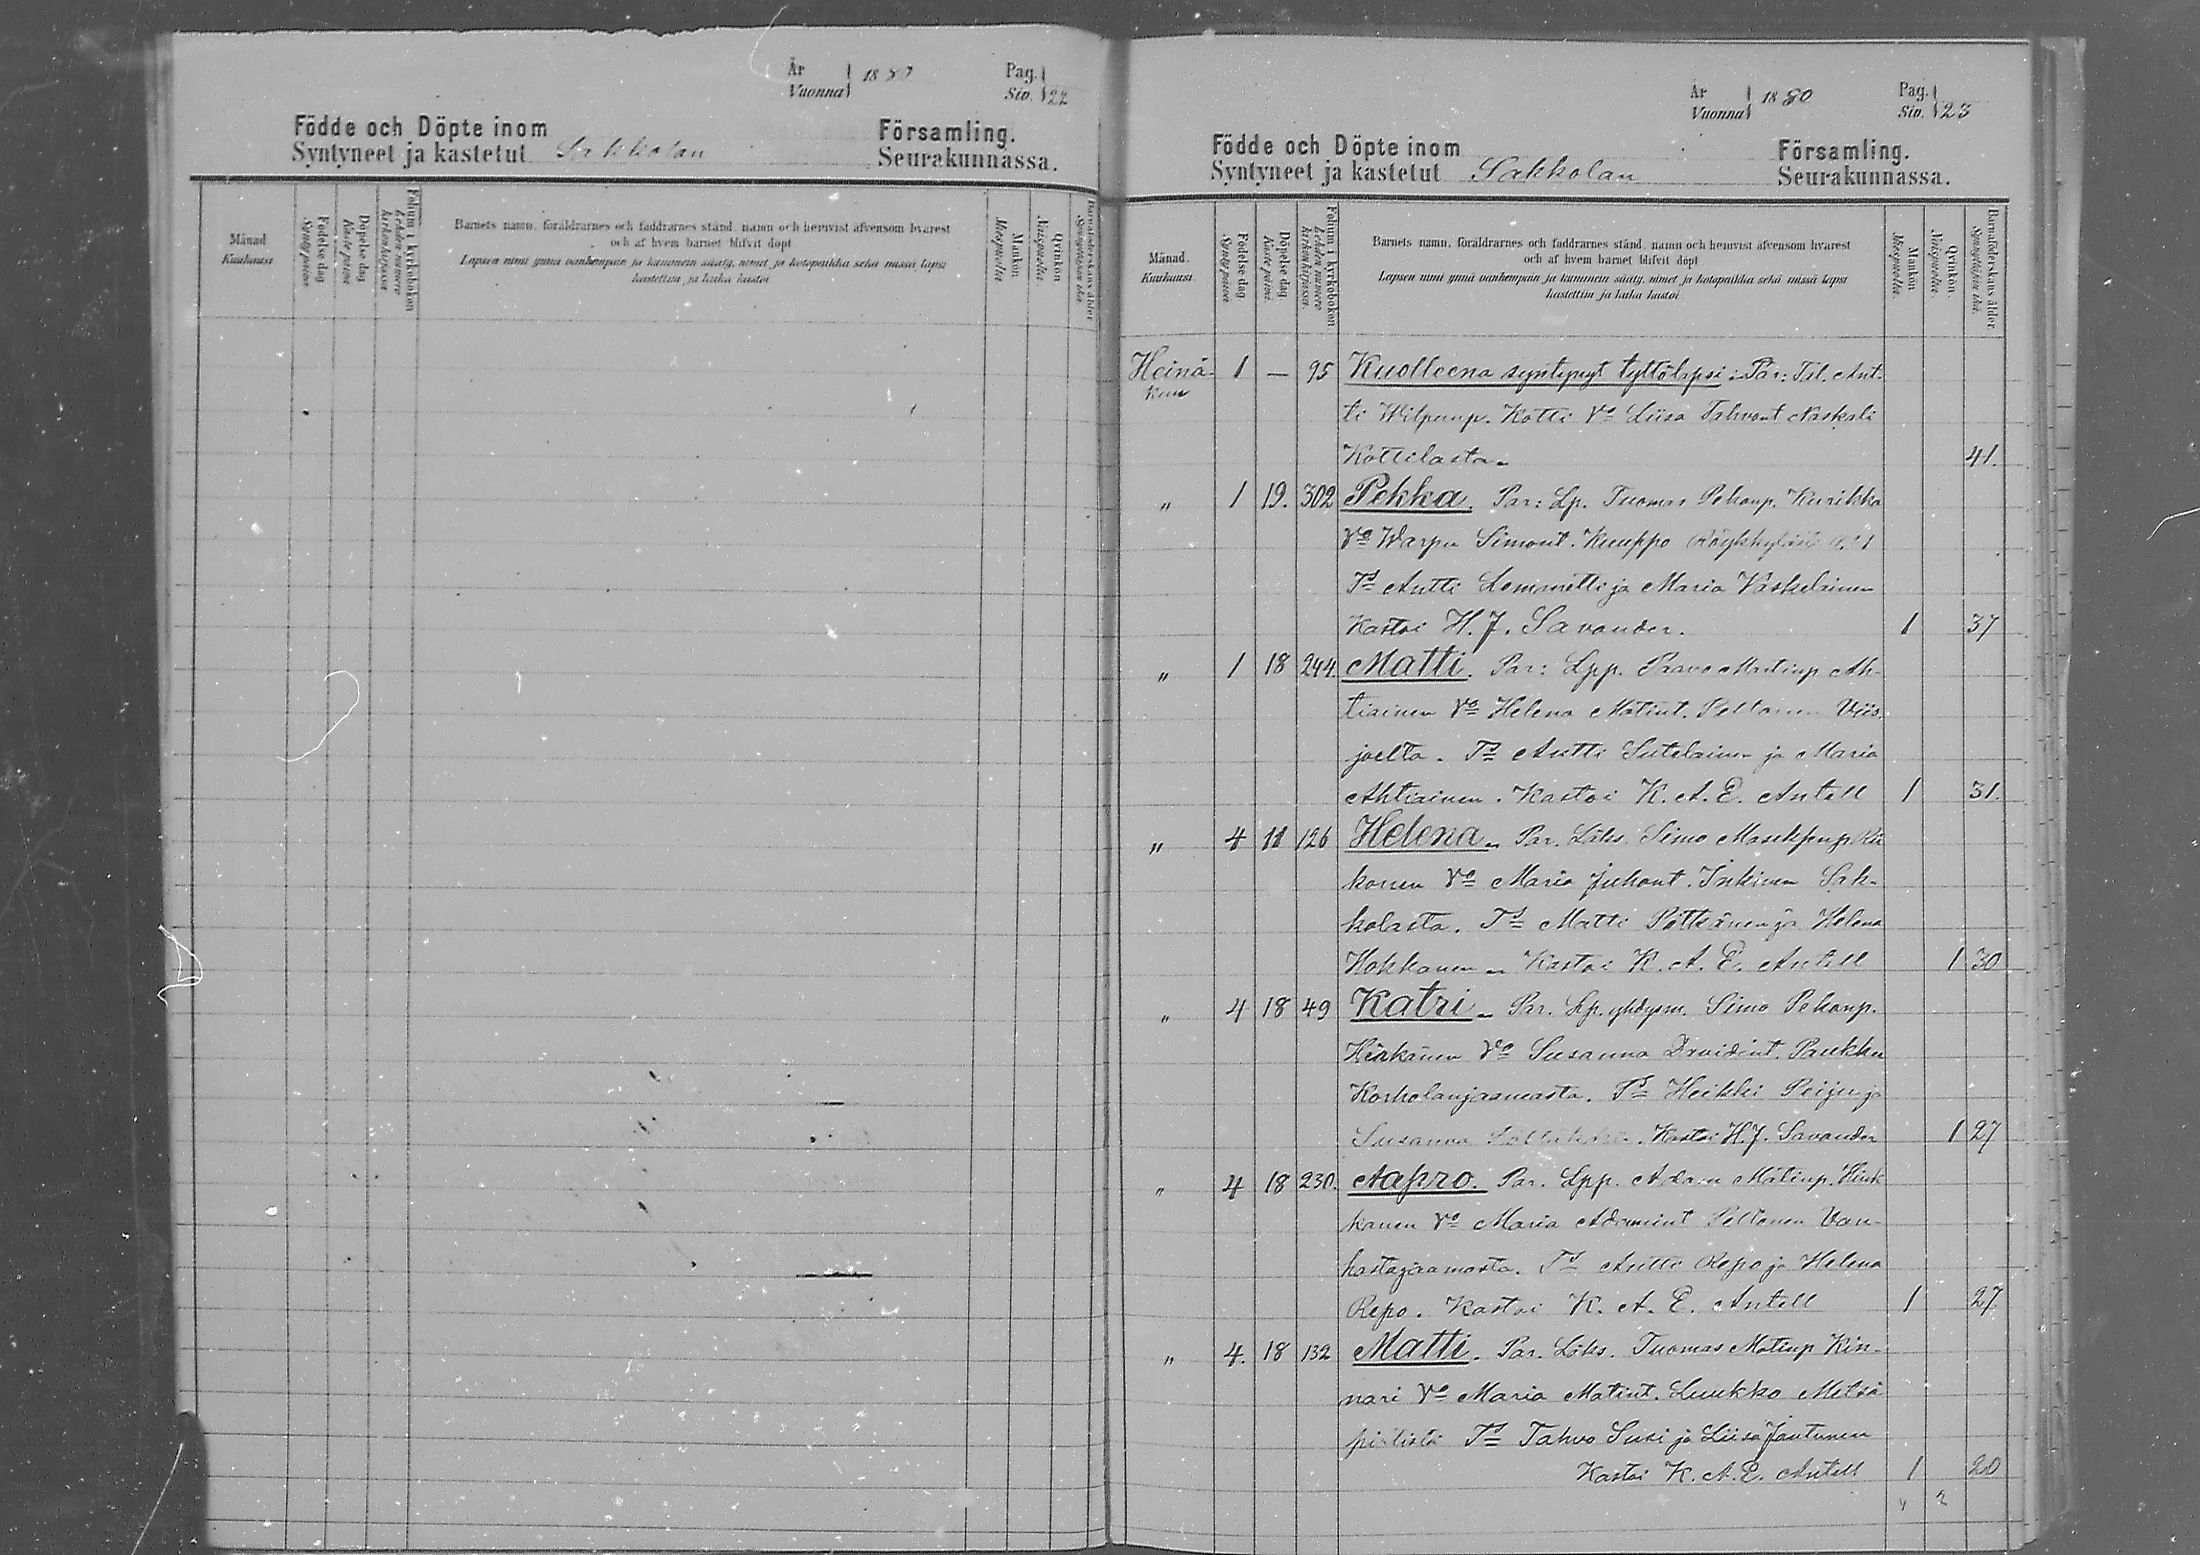 År
Vuonna 1880
Pag.
Siv. 22
Födde och Döpte inom Församling.
Syntyneet ja kastetut Sakkolan Seurakunnassa.
Månad
Kuukausi
Födelse dag
Syntypäivä
Döpelse dag
Kastepäivä
Folium i kyrkoboken
Lehden numero
kirkonkirjassa
Barnets namn, föräldrarnes och faddrarnes stånd, namn och hemvist äfvensom hvarest
och af hvem barnet blifvit döpt
Lapsen nimi ynnä vanhempain ja kummein sääty, nimet ja kotopaikka sekä missä lapsi
kastettiin ja kuka kastoi
Mankön
Miespuolia
Qvinkön
Naispuolia
Barnaföderskans ålder
Synnyttäjän ikä
År
Vuonna 1880
Pag.
Siv. 23
Födde och Döpte inom Församling.
Syntyneet ja kastetut Sakkolan Seurakunnassa.
Månad.
Kuukausi.
Födelse dag
Syntypäivä
Döpelse dag
Kastepäivä.
Folium i kyrkoboken
Lehden numero
kirkonkirjassa.
Barnets namn, föräldrarnes och faddrarnes stånd, namn och hemvist äfvensom hvarest
och af hvem barnet blifvit döpt
Lapsen nimi ynnä vanhempain ja kummein sääty, nimet ja kotopaikka sekä missä lapsi
kastettiin ja kuka kastoi
Mankön
Miespuolia.
Qvinkön.
Naispuolia.
Barnaföderskans ålder.
Synnyttäjän ikä.
Heinä- 1 — 95 Kuolleena syntynyt tyttölapsi. Par: Tal. Ant-
kuu ti Wilpunp. Kotti Vo Liisa Tahvont Naskali
Kottilasta. 41.
" 1 19. 302 Pekka. Par: Lp. Tuomas Pekanp. Kurikka
Vo Warpu Simont. Kuuppo
Ts Antti Lemmetti ja Maria Väskeläinen
Kastoi H. J. Savander. 1 37
" 1 18 244. Matti. Par: Lpp. Paavo Martinp Ah-
tiainen Vo Helena Matint. Peltonen Viis-
joelta. Ts Antti Sutelainen ja Maria
Ahtiainen. Kastoi K. A. E. Antell 1 31.
" 4 11 126 Helena. Par. Läks. Simo
konen Vo Maria Juhont. Inkinen Sak-
kolasta. Ts Matti Pitkänen ja Helena
Hokkanen. Kastoi K. A. E. Antell 1 30
" 4 18 49 Katri. Par. Lp. yhdysm. Simo Pekanp.
Vo Susanna Davidint. Paukku
Korholanjaamasta. Ts Heikki Peijju ja
Susanna Kastoi H. J. Savander 1 27
" 4 18 230. Aapro. Par. Lpp. Adam Matinp. Hink
kanen Vo Maria Adamint Peltonen Van-
hastajaamasta. Ts Antti Repo ja Helena
Repo. Kastoi K. A. E. Antell 1 27
" 4. 18 132 Matti. Par. Läks. Tuomas Matinp Kin-
nari Vo Maria Matint. Luukko Metsä
pirtistä Ts Tahvo Susi ja Liisa Jantunen
Kastoi K. A. E. Antell 1 20
4 2